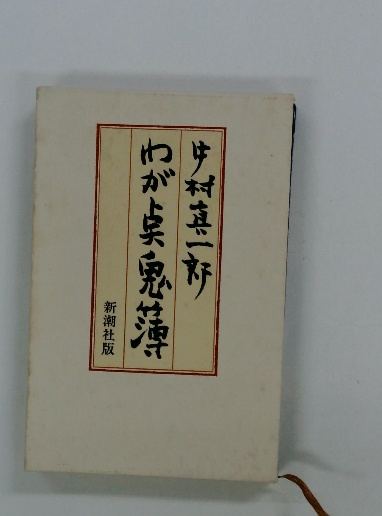 中村真一郎
わが点鬼簿
新潮社版